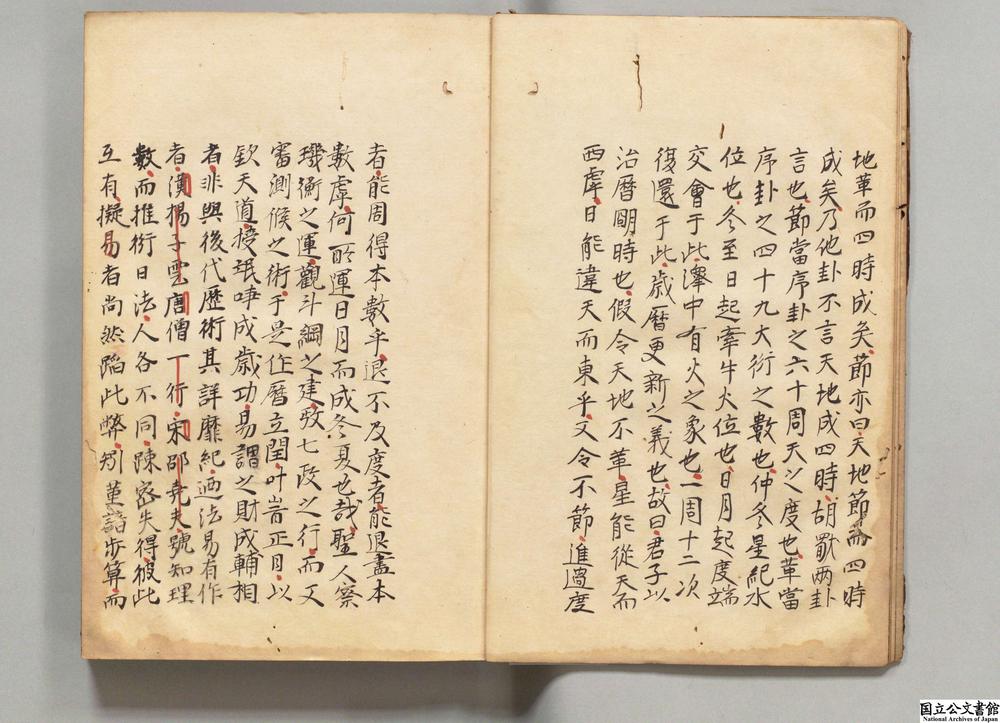 地革而四時成矣節亦曰天地節而四時
成矣乃他卦不言天地成四時胡歟两卦
言也節當序卦之六十周天之度也革當
序卦之四十九大衍之數也仲冬星紀水
位也冬至日起牽牛火位也日月起度端
交會于此澤中有火之象也一周十二次
復還于此歳暦更新之義也故曰君子以
治暦明時也假令天地不革星能從天而
西虖日能違天而東乎又令不節進過度
者能周得本數乎退不及度者能退盡本
數虖何所運日月而成冬夏也哉聖人察
璣衡之運觀斗綱之建攷七政之行而又
審測候之術于是作暦立閏叶峕正月以
欽天道授氓時成歳功易謂之財成輔相
者非與後代歴術其詳靡紀迺法易有作
者漢揚子雲唐僧一行宋邵堯夫號知理
數而推術日法人各不同踈密失得彼此
互有擬易者尚然䧟此弊矧菫諳歩算而
国立公文書館
National Archives of Japan